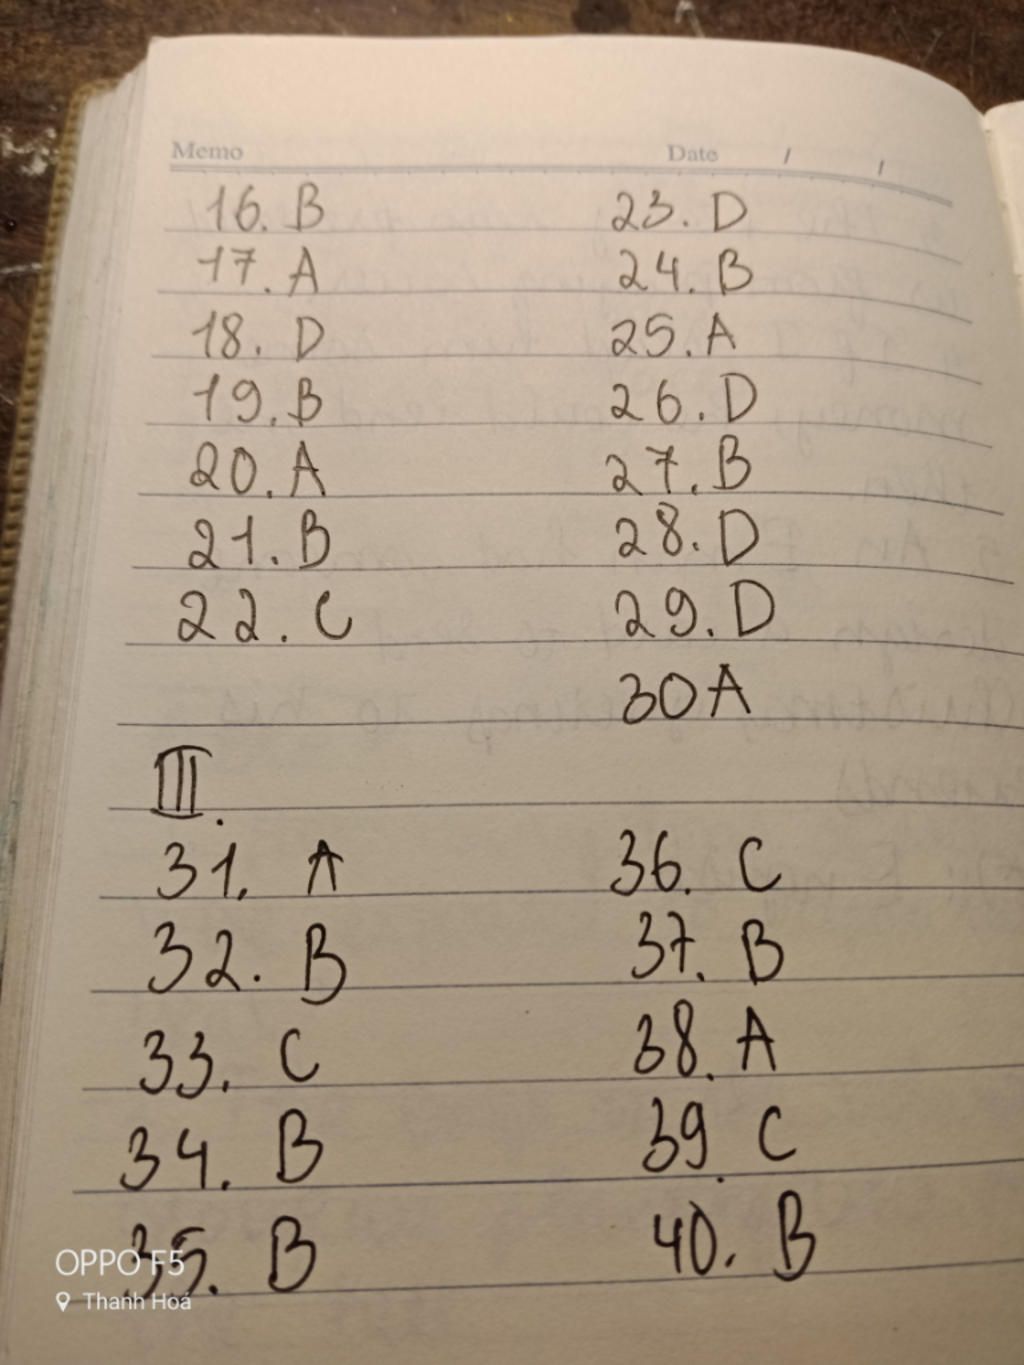 Memo Date / /
16. B
17. A
18. D
19. B
20. A
21. B
22. C
23. D
24. B
25. A
26. D
27. B
28. D
29. D
30 A
III.
31. A
32. B
33. C
34. B
35. B
36. C
37. B
38. A
39. C
40. B
OPPO F5
Thanh Hoá